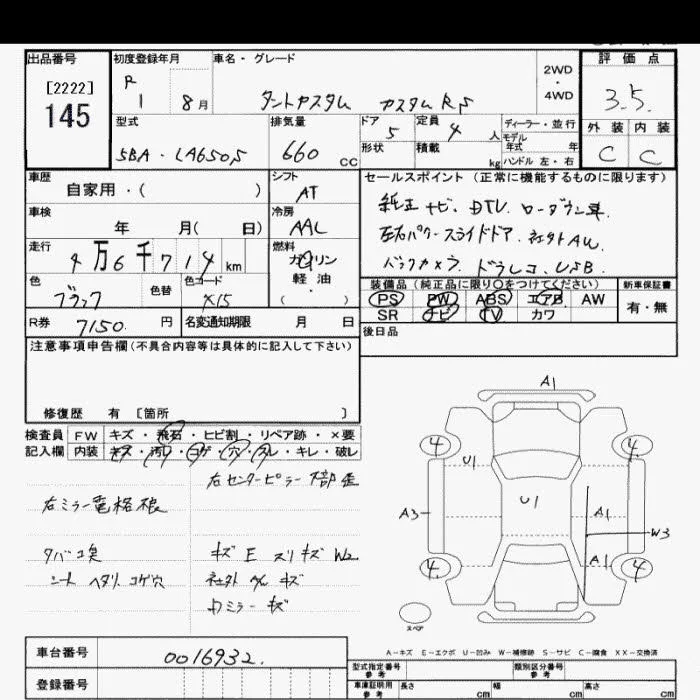 出品番号 初度登録年月 車名・グレード 2WD・4WD 評価点
[2222]
145
R 1 8月 タントカスタム カスタムRS 3.5
型式 排気量 ドア 5 定員 4 人 ディーラー・並行 外装 内装
5BA・LA650S 660 CC 形状 積載 kg モデル年式 年 ハンドル 左・右 C C
車歴 自家用・( ) シフト AT セールスポイント(正常に機能するものに限ります)
車検 年 月( 日) 冷房 AAC 純正ナビ. DTV. ローダウン車.
走行 4万6千714km 燃料 ガソリン 軽油・( ) 左右パワースライドドア. 社外AW.
バックカメラ. ドラレコ. USB.
色 ブラック 色替 色コード X15 装備品(純正品に限り○をつけてください) 新車保証書
PS PW ABS エアB AW 有・無
SR ナビ TV カワ
R券 7150 円 名変通知期限 月 日 後日品
注意事項申告欄(不具合内容等は具体的に記入して下さい)
修復歴 有 [箇所 ]
検査員 FW キズ・飛石・ヒビ割・リペア跡・×要
記入欄 内装 キズ・汚レ・コゲ・穴・スレ・キレ・破レ
右センターピラー下部歪
右ミラー電格
タバコ臭 キズE スリキズW2
シート ヘタリ コゲ穴 社外AW キズ
ミラー キズ
A1
4 4
U1 U1
A3 A1 W3
A1
4 4
スペア
A-キズ E-エクボ U-凹み W-補修跡 S-サビ C-腐食 XX-交換済
車台番号 0016932.
登録番号
型式指定番号 参考 類別区分番号 参考
車庫証明用 参考 長さ cm 幅 cm 高さ cm